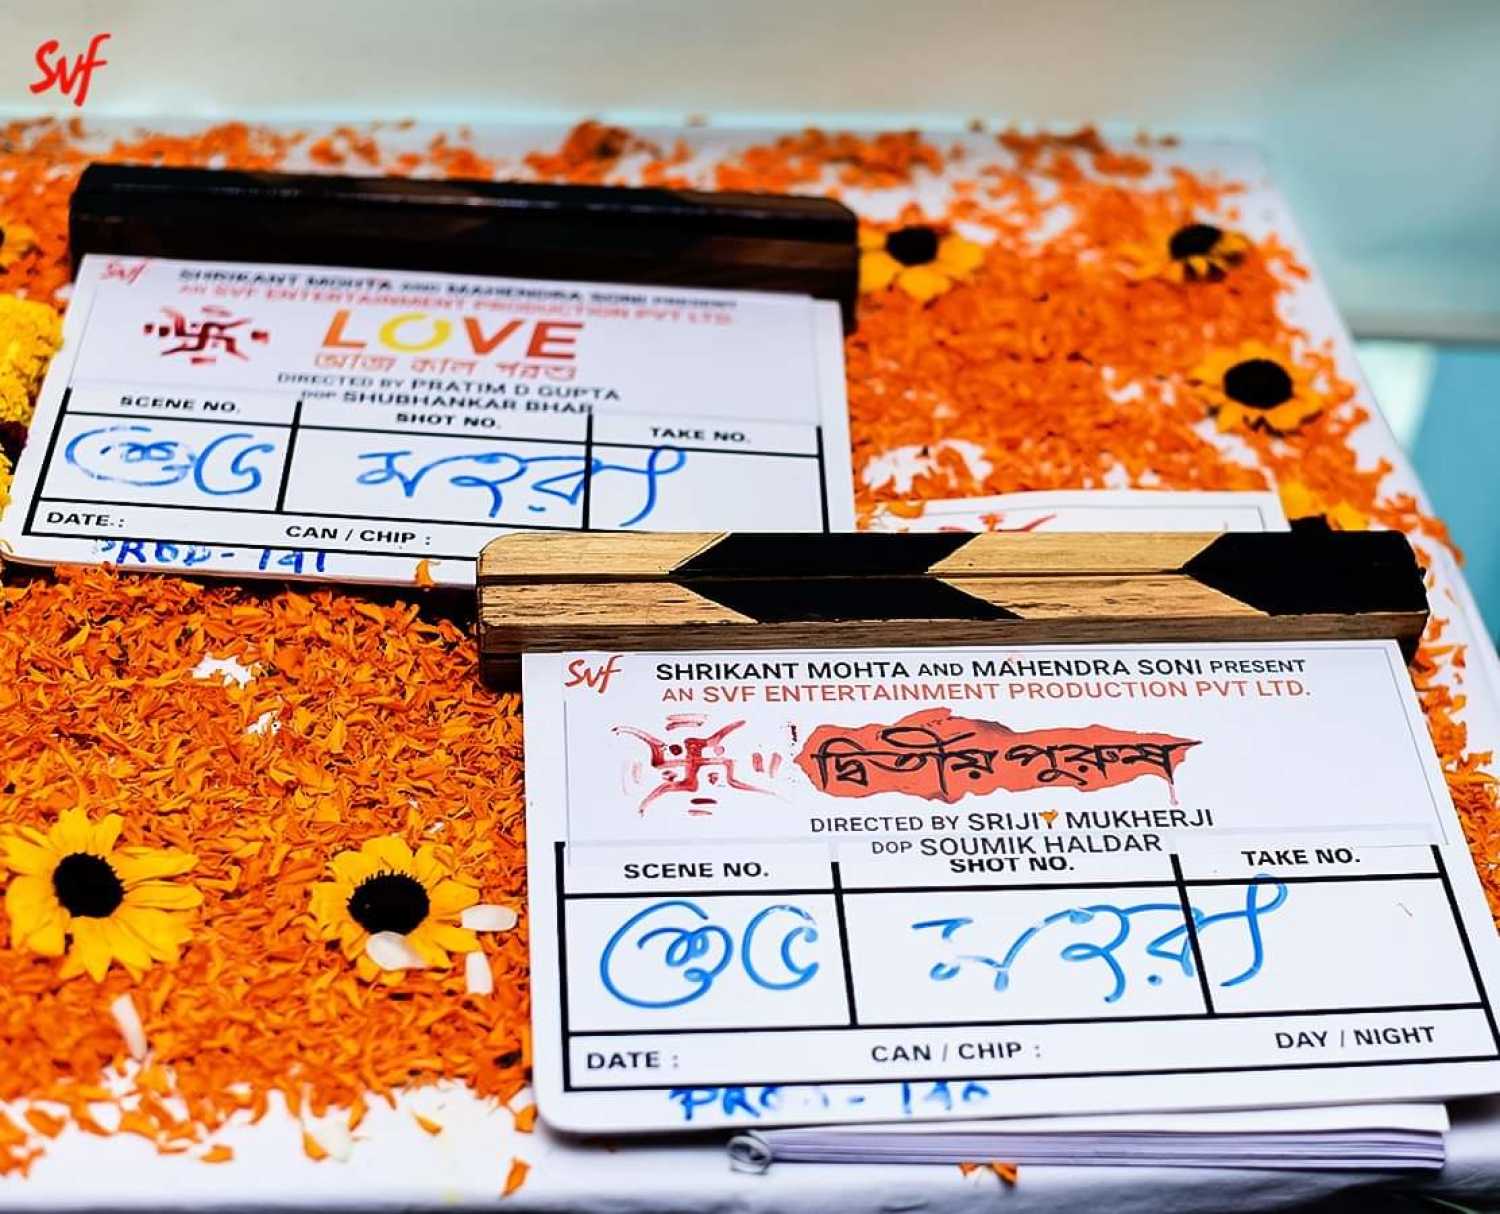 Svf
Svf
SHRIKANT MOHTA AND MAHENDRA SONI PRESENT
AN SVF ENTERTAINMENT PRODUCTION PVT LTD.
LOVE
আজ কাল পরশু
DIRECTED BY PRATIM D GUPTA
DOP SHUBHANKAR BHAR
SCENE NO. SHOT NO. TAKE NO.
শুভ মহরৎ
DATE.: CAN / CHIP :
PROD - 141
Svf
SHRIKANT MOHTA AND MAHENDRA SONI PRESENT
AN SVF ENTERTAINMENT PRODUCTION PVT LTD.
দ্বিতীয় পুরুষ
DIRECTED BY SRIJIT MUKHERJI
DOP SOUMIK HALDAR
SCENE NO. SHOT NO. TAKE NO.
শুভ মহরৎ
DATE : CAN / CHIP : DAY / NIGHT
PROD - 140